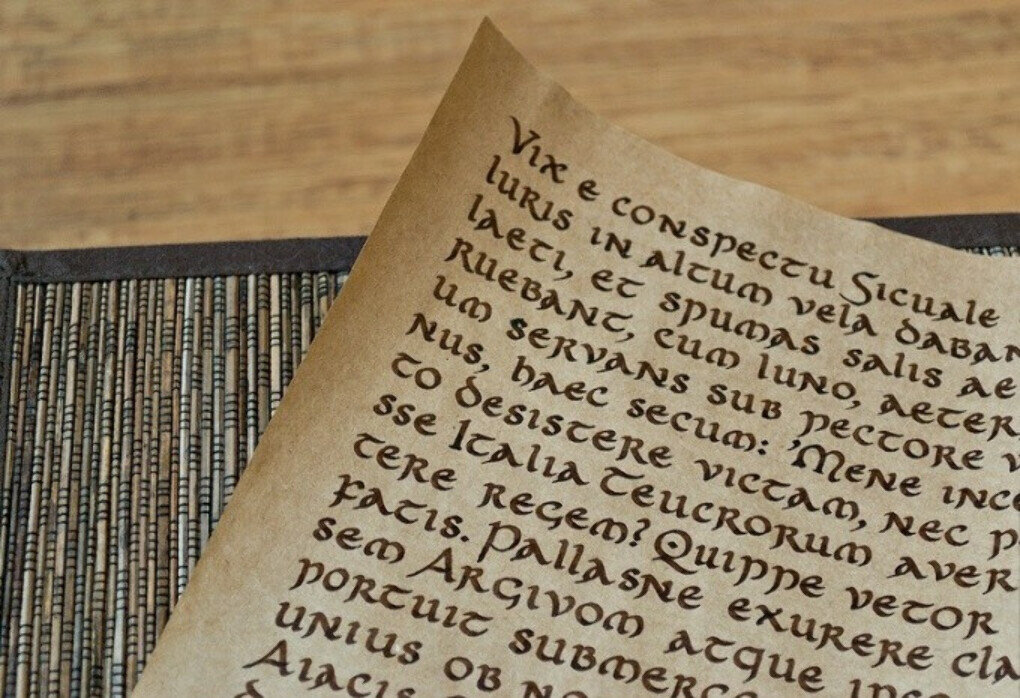 Vix e conspectu Sicuale
luris in altum vela daban
laeti, et spumas salis ae
ruebant, cum luno, aeter
um servans sub pectore v
nus, haec secum: 'Mene ince
to desistere victam, nec p
sse Italia Teucrorum aver
tere regem? Quippe vetor
fatis. Pallasne exurere cla
sem Argivom atque in
portuit submerge
unius ob no
Aiacis